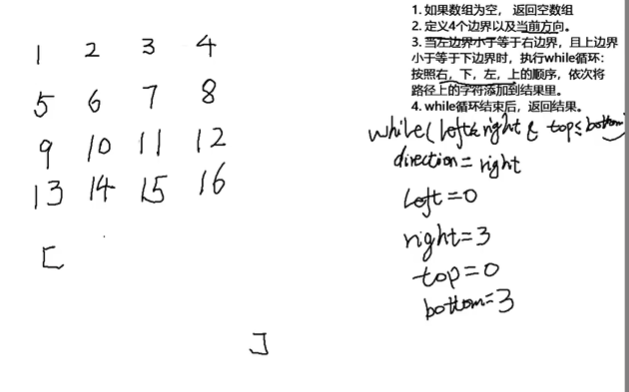 1 2 3 4
5 6 7 8
9 10 11 12
13 14 15 16
[
]
1. 如果数组为空，返回空数组
2. 定义4个边界以及当前方向。
3. 当左边界小于等于右边界，且上边界
小于等于下边界时，执行while循环：
按照右，下，左，上的顺序，依次将
路径上的字符添加到结果里。
4. while循环结束后，返回结果。
while(left≤right & top≤bottom)
direction=right
left=0
right=3
top=0
bottom=3